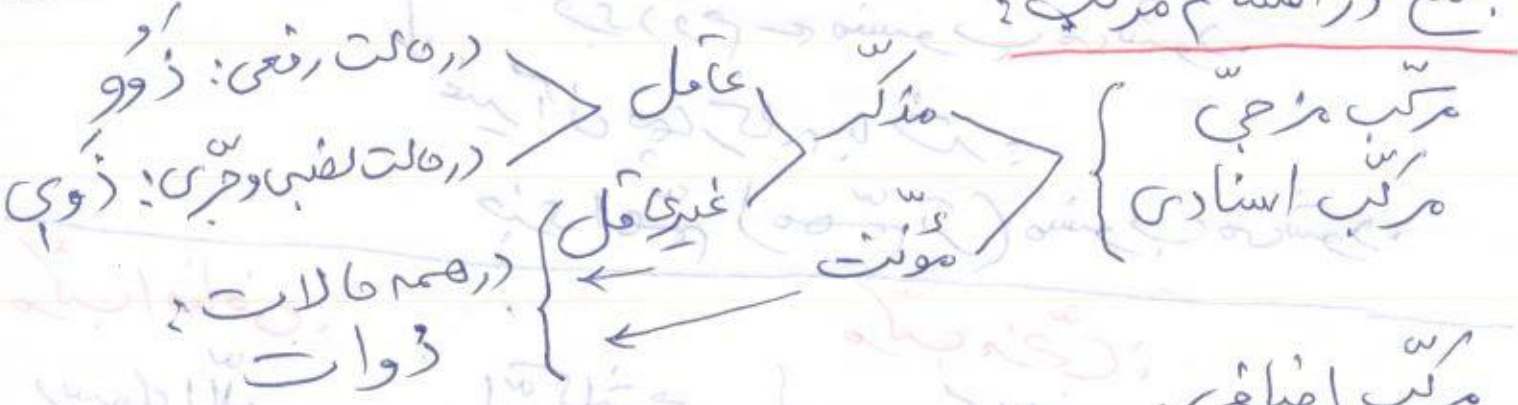 جمع در اقسام مرکّب:
مرکّب مزجیّ
مرکّب اسنادی
مذکّر
مؤنّث
عاقل
غیرعاقل
در حالت رفعی: ذَوُو
در حالت نصبی و جرّی: ذَوِی
در همه حالات:
ذوات
مرکّب اضافی